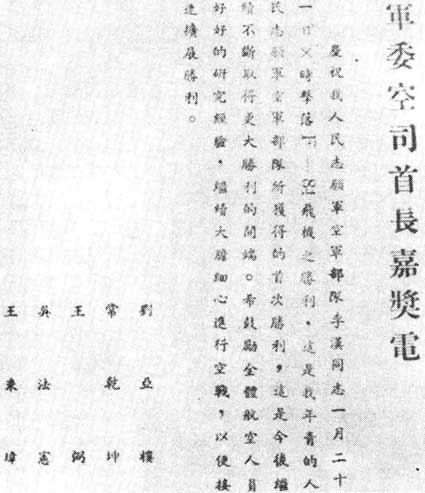 軍委空司首長嘉獎電
慶祝我人民志願軍空軍部隊李漢同志一月二十
一日X時擊落飛機之勝利,這是我年青的人
民志願軍空軍部隊所獲得的首次勝利,這是今後繼
續不斷取得更大勝利的開端。希鼓勵全體航空人員
好好的研究經驗,繼續大膽細心進行空戰,以便接
連擴展勝利。
劉亞樓
常乾坤
王弼
吳法憲
王秉璋